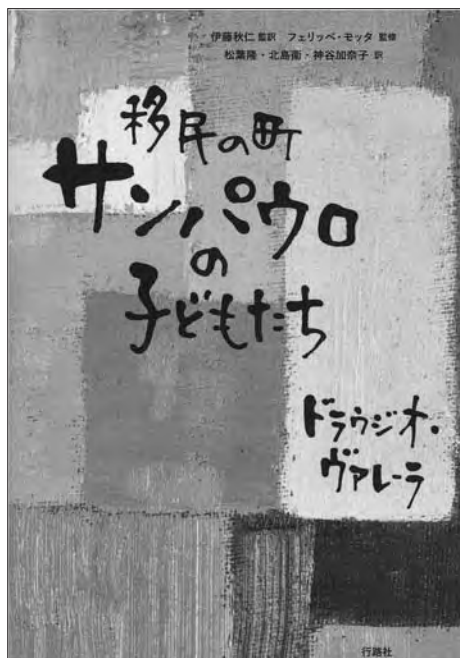 伊藤秋仁 監訳 フェリッペ・モッタ 監修
松葉隆・北島衛・神谷加奈子 訳
移民の町
サンパウロ
の
子どもたち
ドラウジオ・
ヴァレーラ
行路社